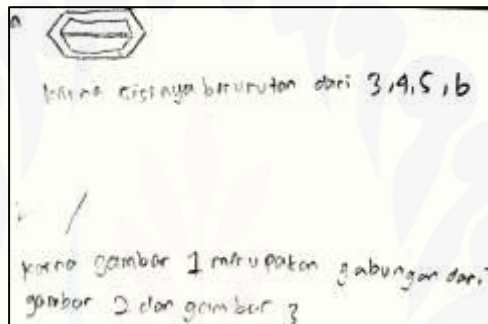 karna sisinya berurutan dari 3,4,5,6
karna gambar 1 merupakan gabungan dari
gambar 2 dan gambar 3